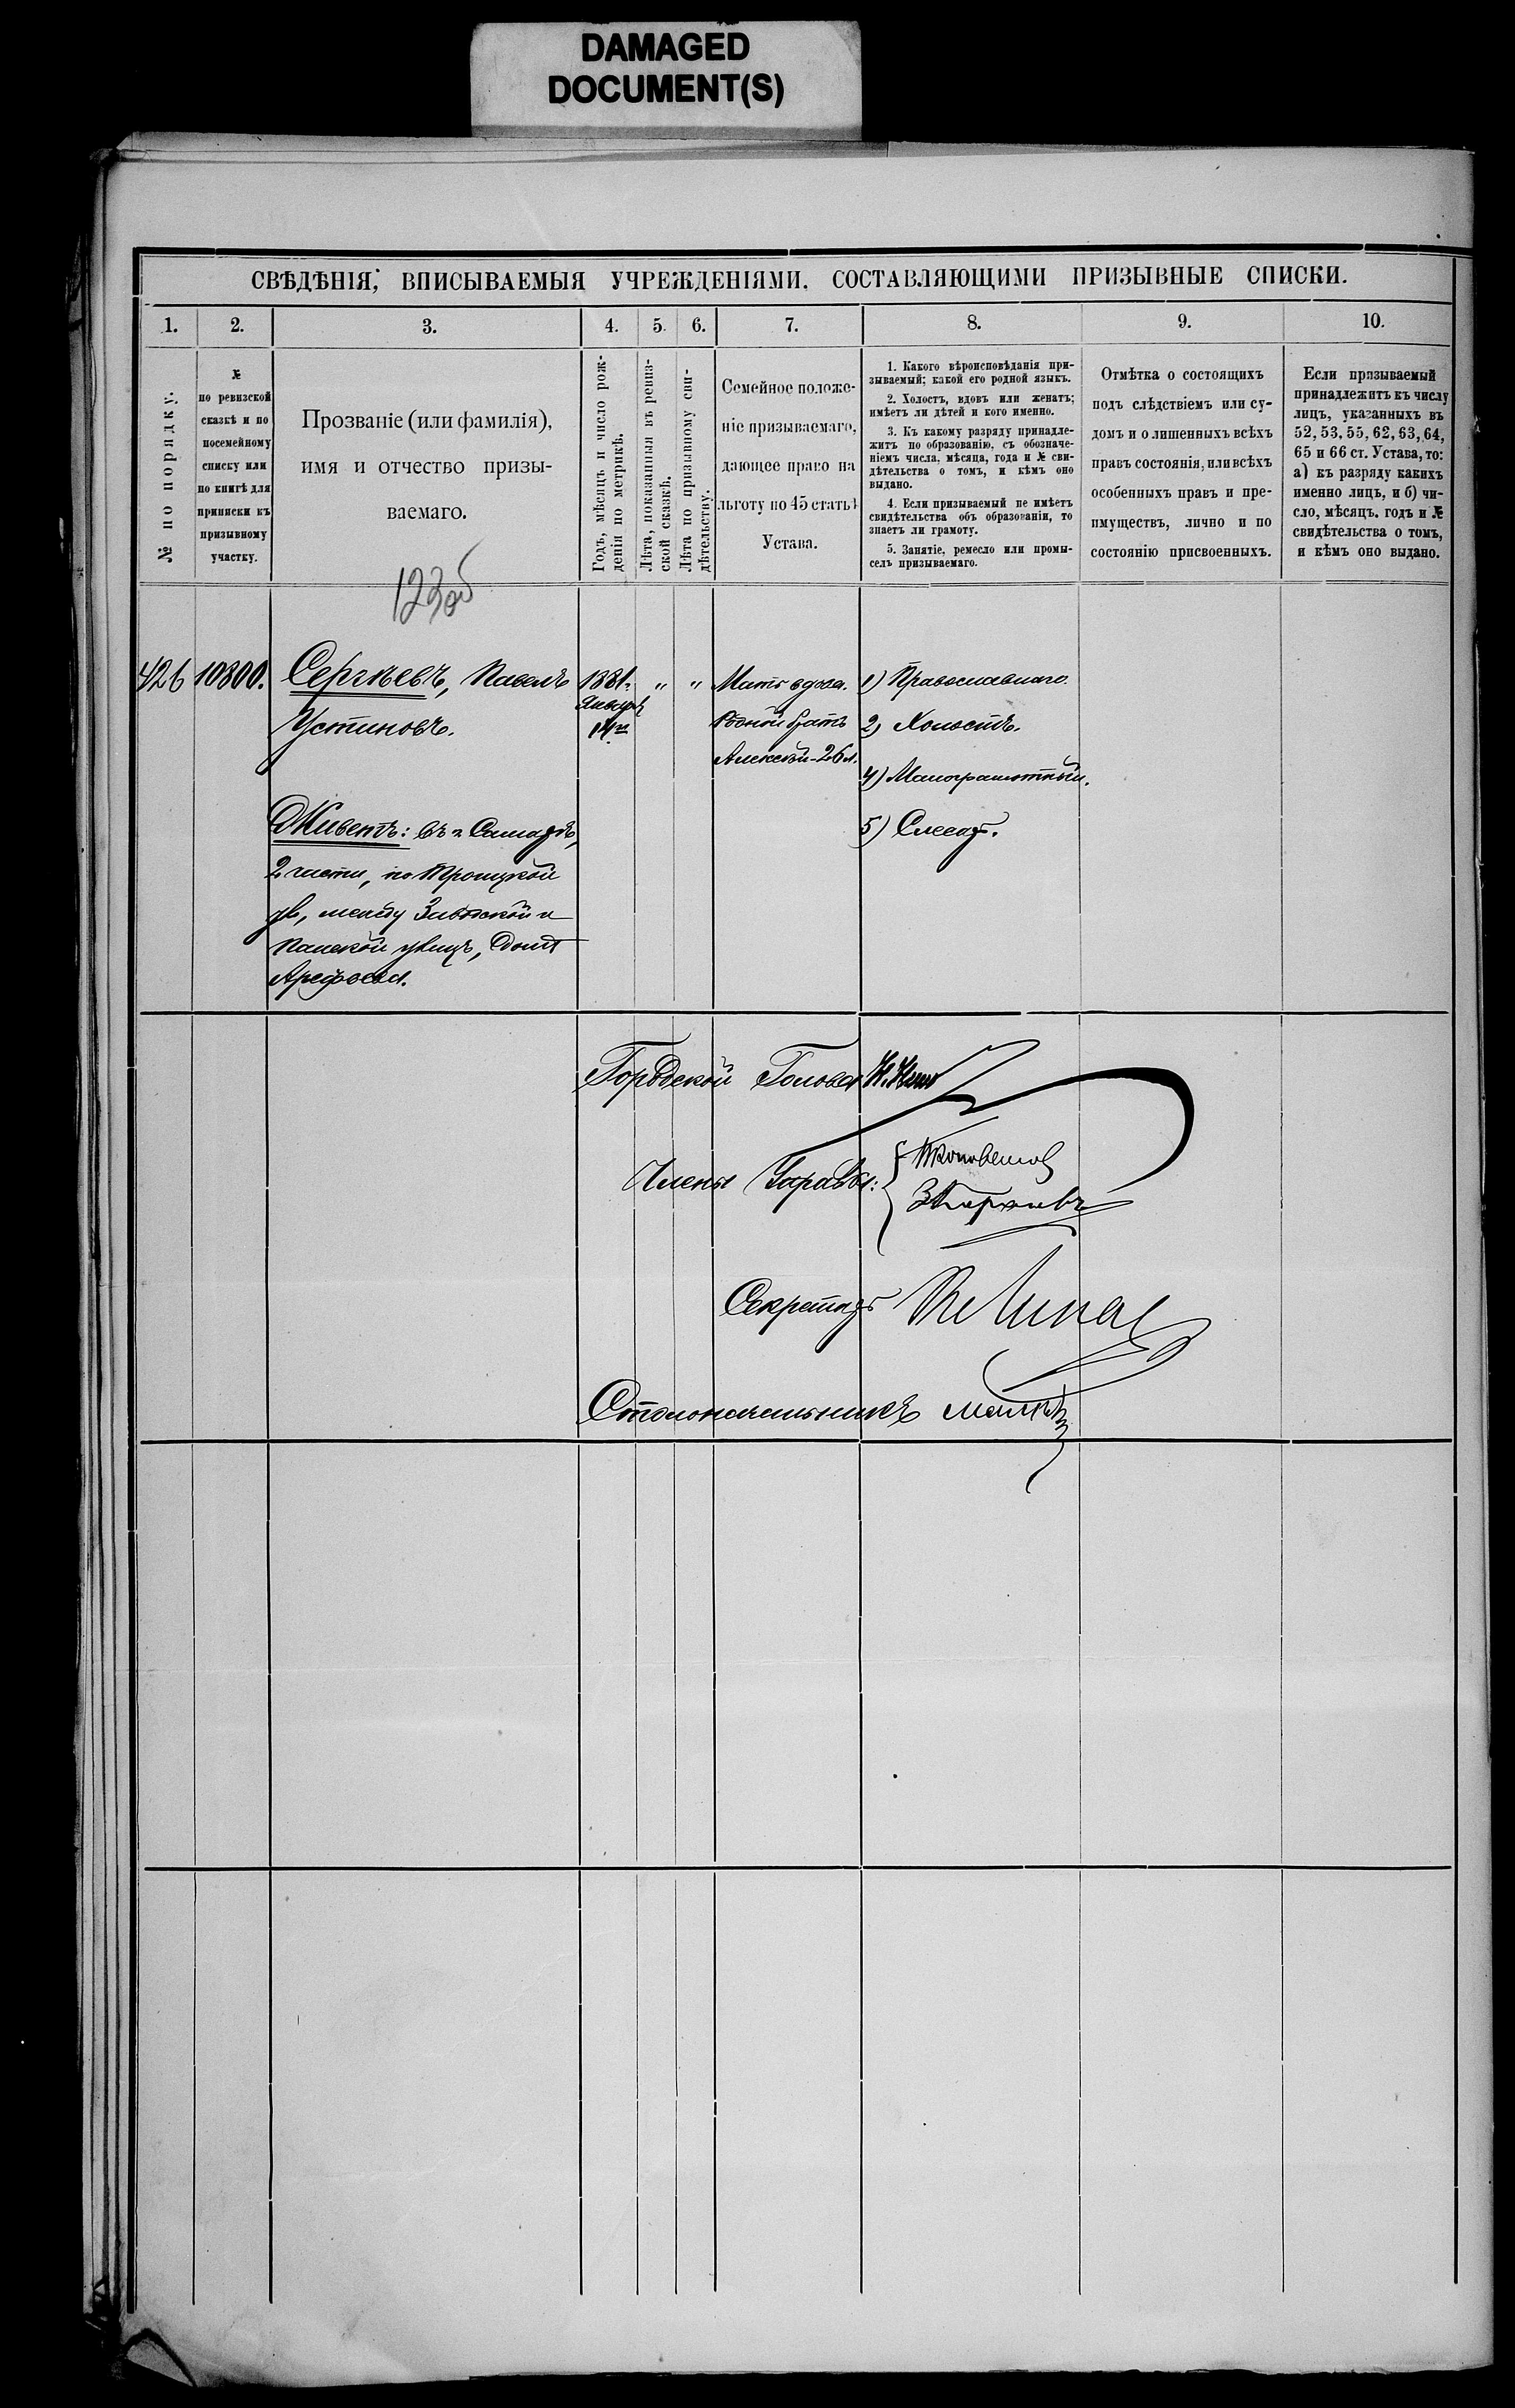 DAMAGED
DOCUMENT(S)
СВѢДѢНІЯ, ВПИСЫВАЕМЫЯ УЧРЕЖДЕНІЯМИ, СОСТАВЛЯЮЩИМИ ПРИЗЫВНЫЕ СПИСКИ.
1. 2. 3. 4. 5. 6. 7. 8. 9. 10.
№ по порядку.
№
по ревизской
сказкѣ и по
посемейному
списку или
по книгѣ для
приписки къ
призывному
участку.
Прозваніе (или фамилія),
имя и отчество призы-
ваемаго.
Годъ, мѣсяцъ и число рож-
денія по метрикѣ.
Лѣта, показанныя въ ревиз-
ской сказкѣ.
Лѣта по призывному сви-
дѣтельству.
Семейное положе-
ніе призываемаго,
дающее право на
льготу по 45 статьѣ
Устава.
1. Какого вѣроисповѣданія при-
зываемый; какой его родной языкъ.
2. Холостъ, вдовъ или женатъ;
имѣетъ ли дѣтей и кого именно.
3. Къ какому разряду принадле-
житъ по образованію, съ обозначе-
ніемъ числа, мѣсяца, года и № сви-
дѣтельства о томъ, и кѣмъ оно
выдано.
4. Если призываемый не имѣетъ
свидѣтельства объ образованіи, то
знаетъ ли грамоту.
5. Занятіе, ремесло или промы-
селъ призываемаго.
Отмѣтка о состоящихъ
подъ слѣдствіемъ или су-
домъ и о лишенныхъ всѣхъ
правъ состоянія, или всѣхъ
особенныхъ правъ и пре-
имуществъ, лично и по
состоянію присвоенныхъ.
Если призываемый
принадлежитъ къ числу
лицъ, указанныхъ въ
52, 53, 55, 62, 63, 64,
65 и 66 ст. Устава, то:
а) къ разряду какихъ
именно лицъ, и б) чи-
сло, мѣсяцъ, годъ и №
свидѣтельства о томъ,
и кѣмъ оно выдано.
123об
426 10300. Сергѣевъ, Павелъ
Устиновъ.
Живетъ: въ г. Самарѣ,
2 части, по Троицкой
ул, между Заводской и
Панской улицъ, домъ
Арефьева.
1881 г.
Января
14го
" "
Мать вдова.
Родной братъ
Алексѣй - 26 л.
1) Православнаго.
2) Холостъ.
4) Малограмотный.
5) Слесарь.
Городской Голова
Члены Управы:
Секретарь
Столоначальникъ